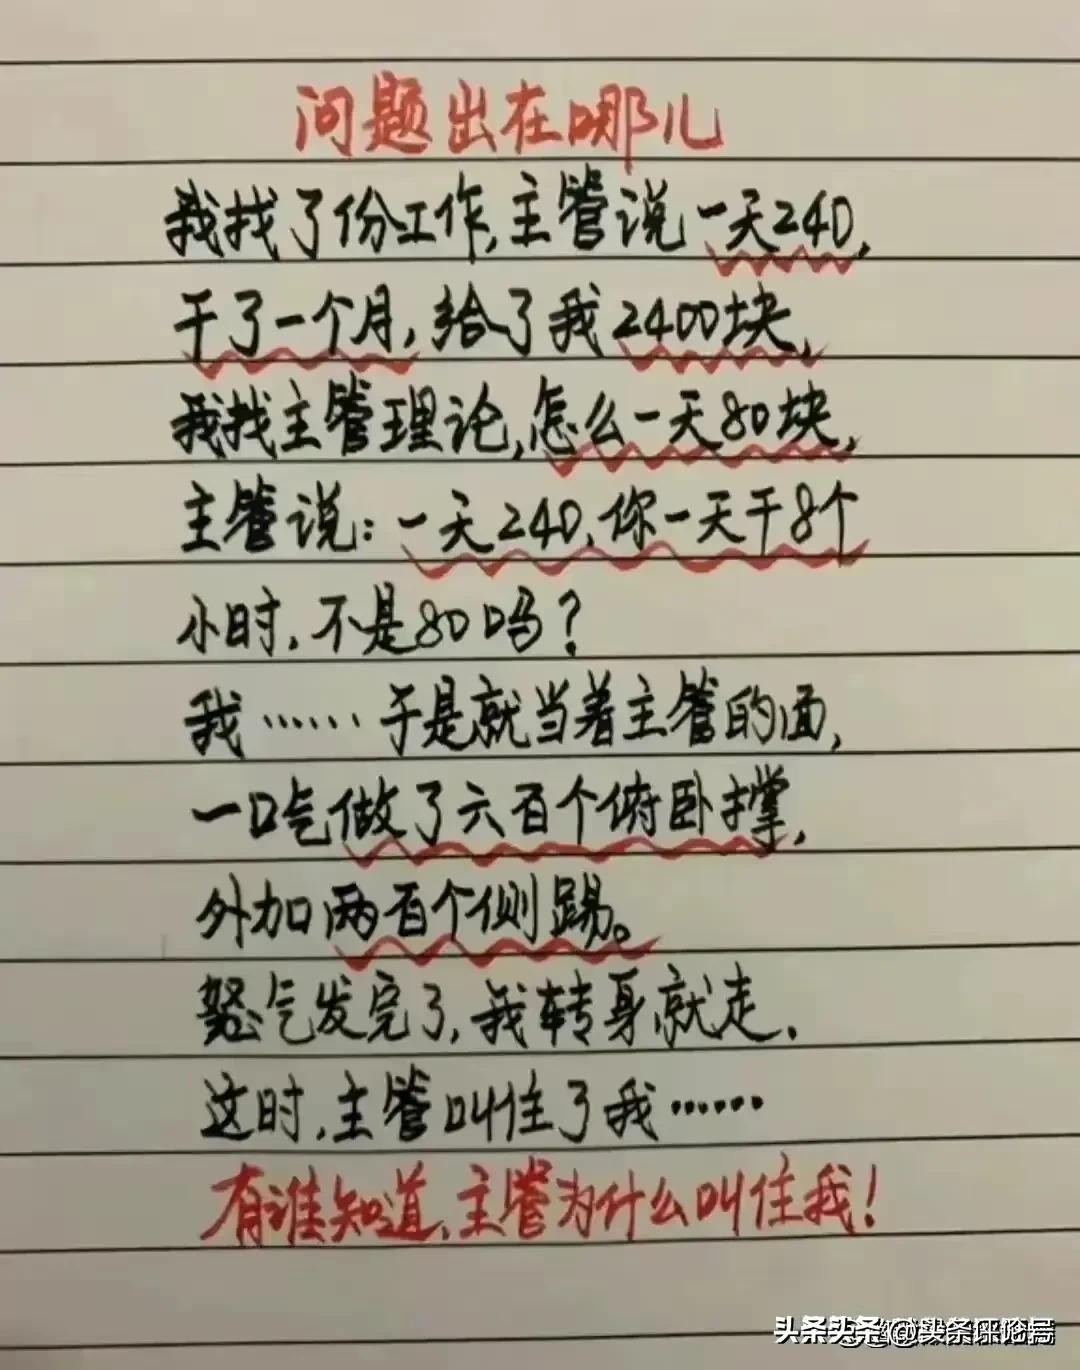 问题出在哪儿
我找了份工作,主管说一天240,
干了一个月,给了我2400块,
我找主管理论,怎么一天80块,
主管说:一天240,你一天干8个
小时,不是80吗?
我……于是就当着主管的面,
一口气做了六百个俯卧撑,
外加两百个侧踢。
怒气发完了,我转身就走.
这时,主管叫住了我……
有谁知道,主管为什么叫住我!
头条 @头条评论局